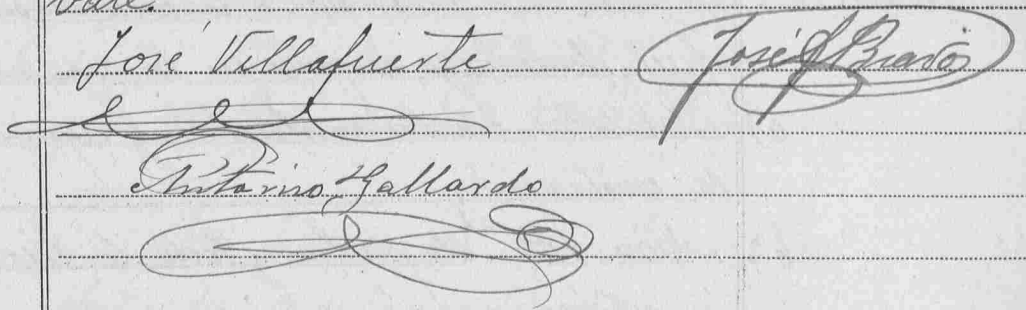 vale.
José Villafuerte
José J Bravo
Antonino Gallardo